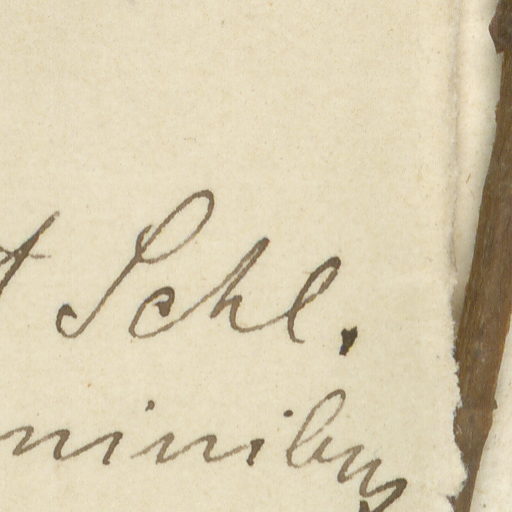 t Schl.
minibus